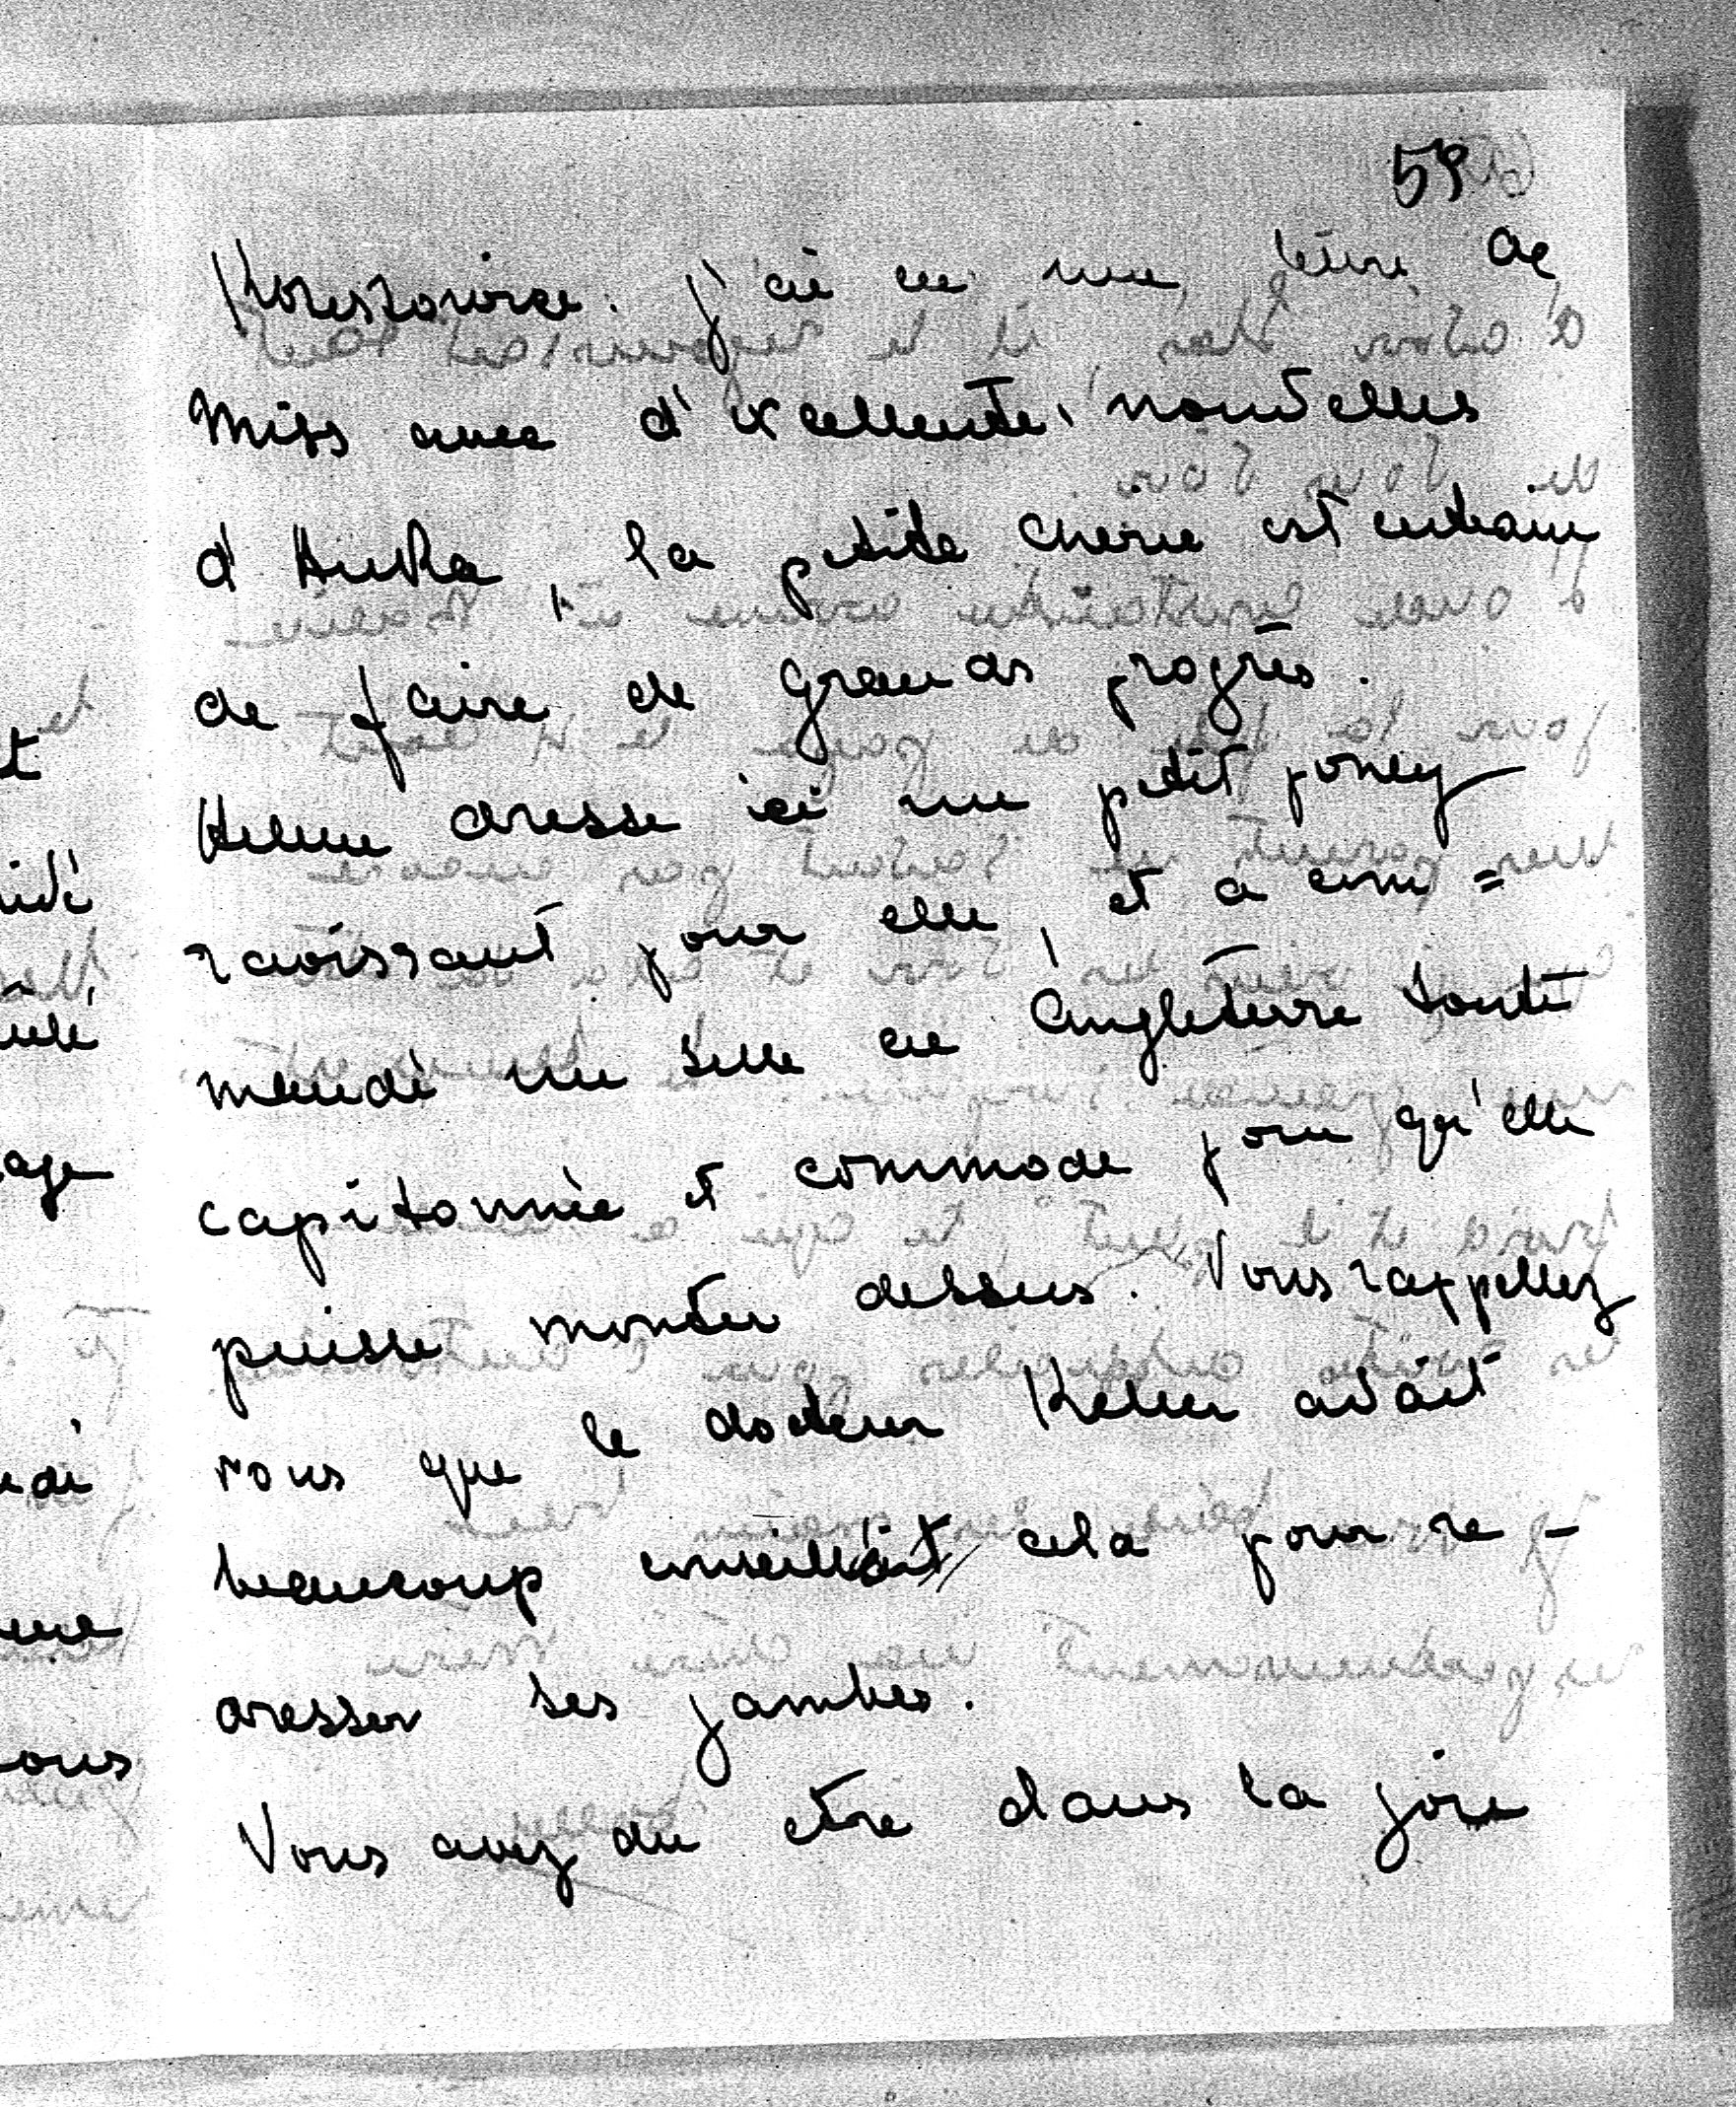 59
j'ai eu une lettre de
Miss avec d'excellentes nouvelles
d' la petite cherie est entrain
de faire de grands progrès.
Helene dresse ici un petit poney
ravissant pour elle, et a com =
mandé une selle en Angleterre toute
capitonnée et commode pour qu'elle
puisse monter dessus. Vous rappellez
vous que le docteur avait
beaucoup conseillait cela pour re -
dresser ses jambes.
Vous avez du etre dans la joie